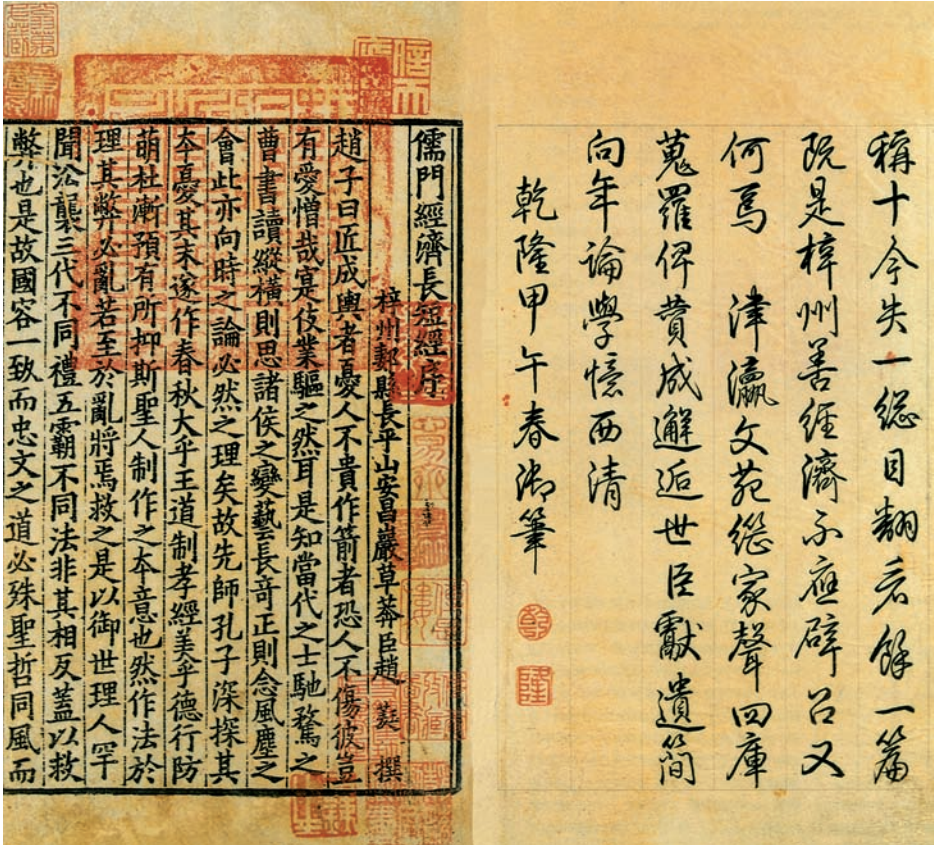 稱十今失一總目翻看餘一篇
既是梓州善經濟不應辟召又
何焉 津瀛文苑總家聲四庫
蒐羅俾贊成邂逅世臣獻遺簡
向年論學憶西清
乾隆甲午春御筆
乾
隆
儒門經濟長短經序
梓州郪縣長平山安昌巖草莽臣趙 蕤 撰
趙子曰匠成輿者憂人不貴作箭者恐人不傷彼豈
有愛憎哉寔伎業驅之然耳是知當代之士馳騖之
曹書讀縱橫則思諸侯之變藝長竒正則念風塵之
會此亦向時之論必然之理矣故先師孔子深探其
夲憂其末遂作春秋大乎王道制孝經美乎德行防
萌杜漸預有所抑斯聖人制作之夲意也然作法於
理其弊必亂若至於亂將焉救之是以御世理人罕
聞沿襲三代不同禮五霸不同法非其相反蓋以救
弊也是故國容一致而忠文之道必殊聖哲同風而